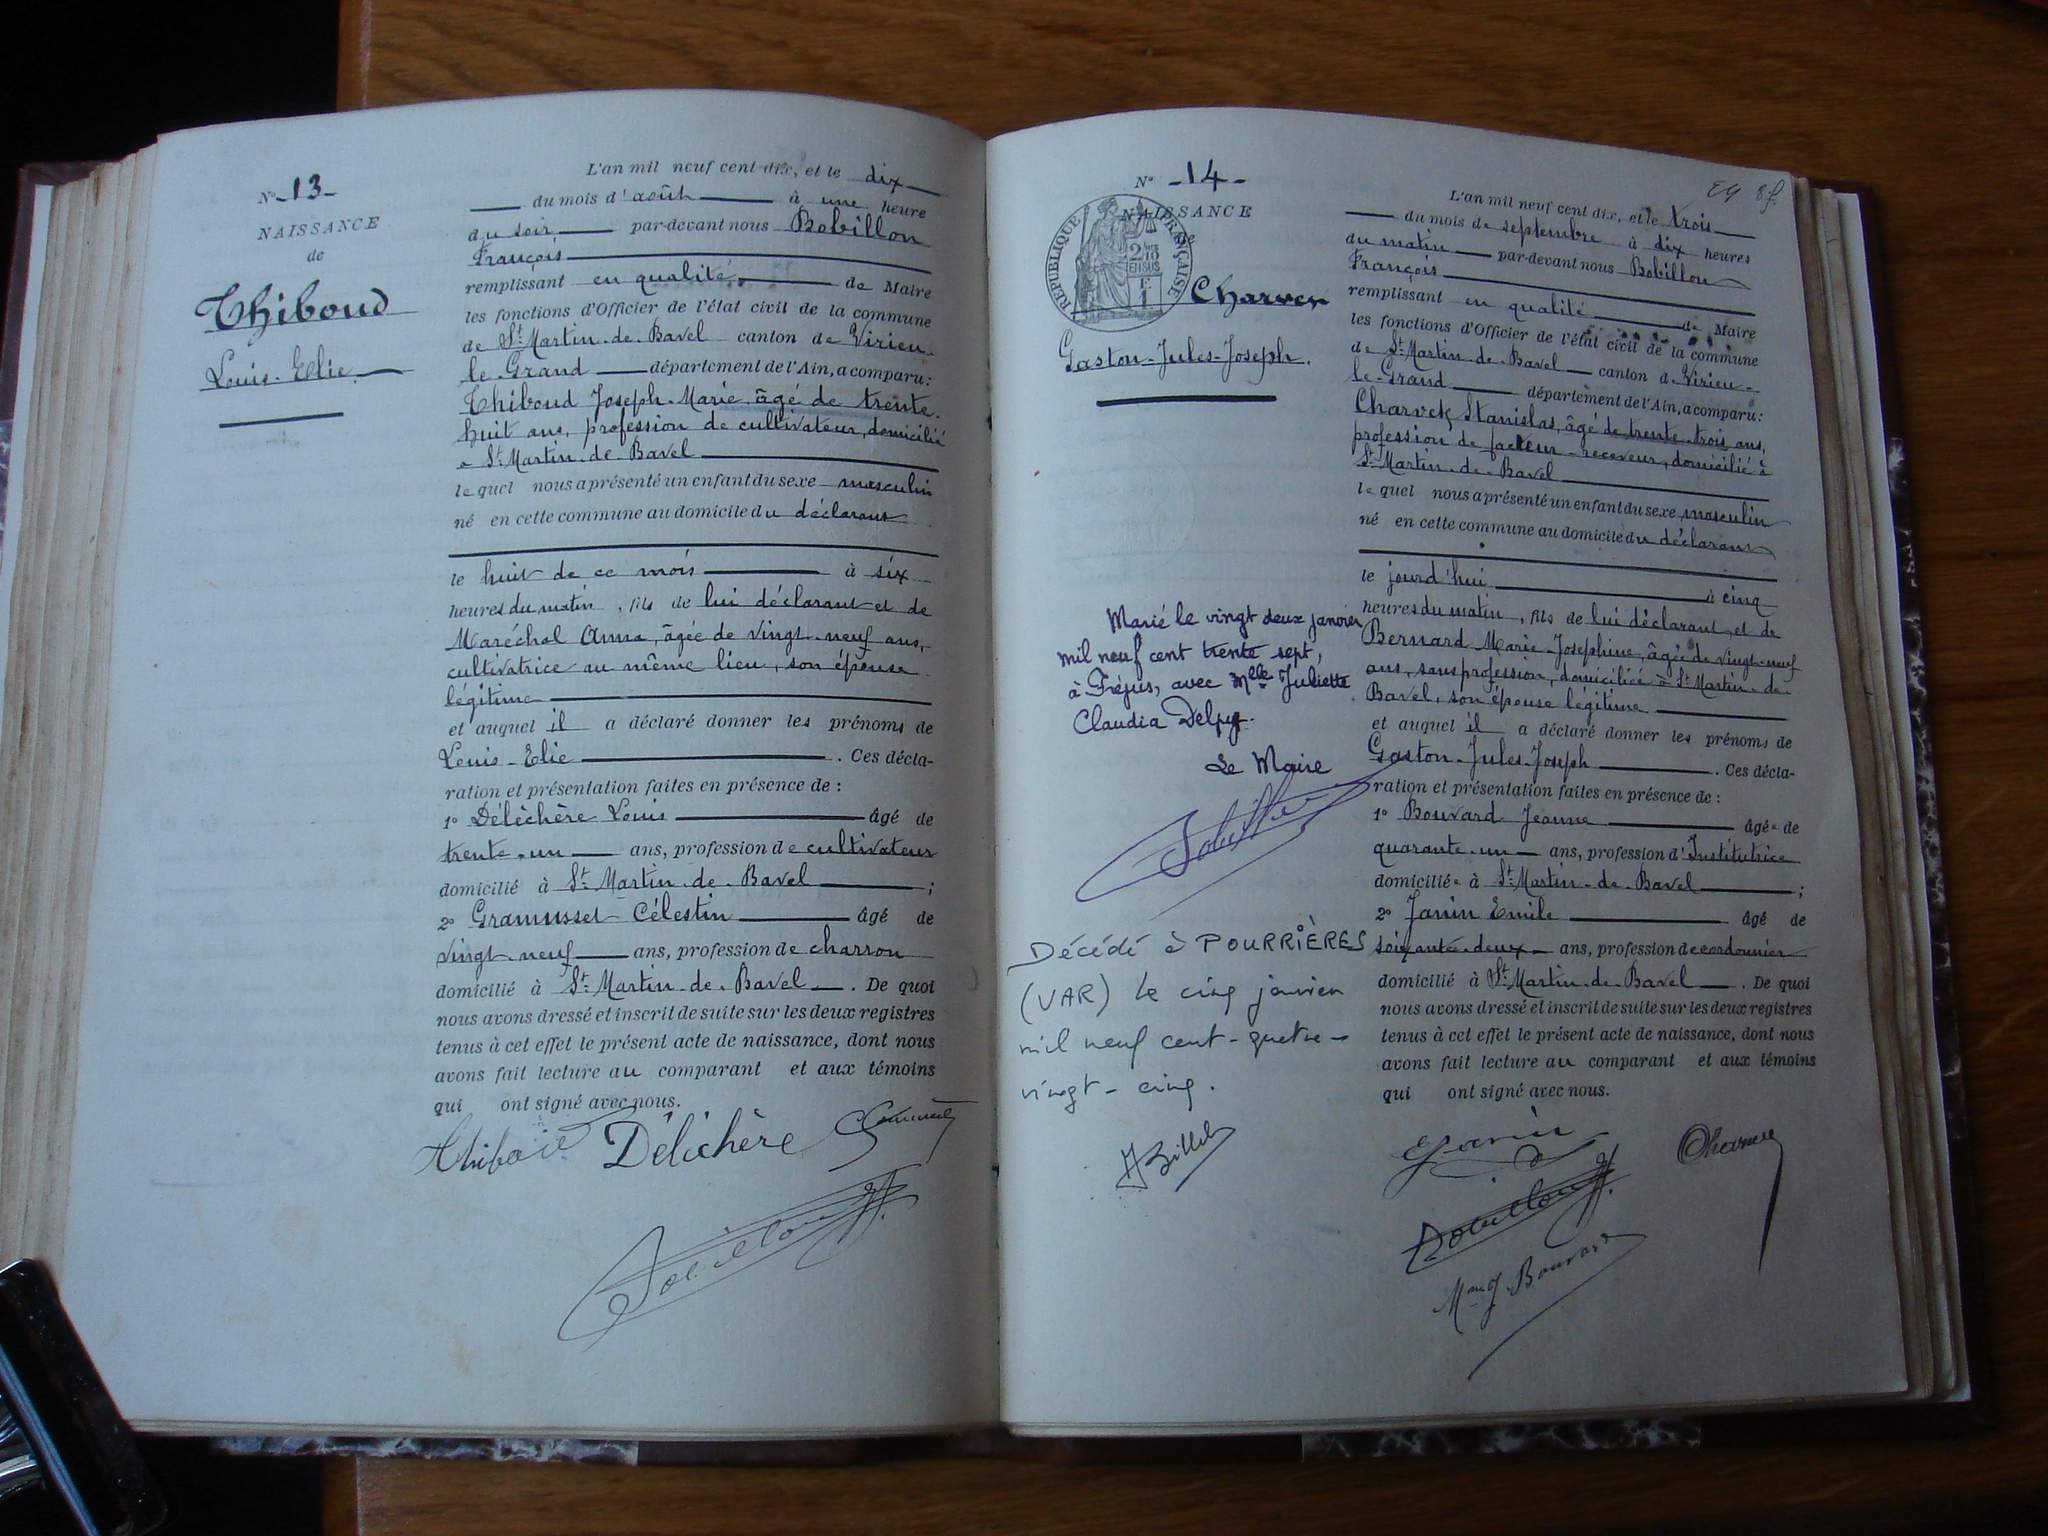 N° -13-
NAISSANCE
de
Thiboud
Louis-Elie
L'an mil neuf cent dix, et le dix
du mois d'août à une heure
du soir par-devant nous Bobillon
François
remplissant en qualité de Maire
les fonctions d'Officier de l'état civil de la commune
de St Martin-de-Bavel canton de Virieu-
le-Grand département de l'Ain, a comparu:
Thiboud Joseph-Marie, âgé de trente-
huit ans, profession de cultivateur, domicilié
à St Martin-de-Bavel
lequel nous a présenté un enfant du sexe masculin
né en cette commune au domicile du déclarant
le huit de ce mois à six
heures du matin, fils de lui déclarant et de
Maréchal Anna, âgée de vingt-neuf ans,
cultivatrice au même lieu, son épouse
légitime
et auquel il a déclaré donner les prénoms de
Louis-Elie. Ces décla-
ration et présentation faites en présence de:
1° Délèchère Louis âgé de
trente-un ans, profession de cultivateur
domicilié à St Martin-de-Bavel;
2° Gramusset Célestin âgé de
vingt-neuf ans, profession de charron
domicilié à St Martin-de-Bavel. De quoi
nous avons dressé et inscrit de suite sur les deux registres
tenus à cet effet le présent acte de naissance, dont nous
avons fait lecture au comparant et aux témoins
qui ont signé avec nous.
Délèchère
Bobillon
N° -14-
NAISSANCE
de
RÉPUBLIQUE FRANÇAISE
2/10 EN SUS
Charvet
Gaston-Jules-Joseph.
Marié le vingt deux janvier
mil neuf cent trente sept,
à Fréjus, avec Melle Juliette
Claudia
Le Maire
Décédé à POURRIÈRES
(VAR) le cinq janvier
mil neuf cent-quatre-
vingt-cinq.
L'an mil neuf cent dix, et le trois
du mois de septembre à dix heures
du matin par-devant nous Bobillon
François
remplissant en qualité de Maire
les fonctions d'Officier de l'état civil de la commune
de St Martin-de-Bavel canton de Virieu-
le-Grand département de l'Ain, a comparu:
Charvet Stanislas, âgé de trente-trois ans,
profession de facteur-receveur, domicilié à
St Martin-de-Bavel
lequel nous a présenté un enfant du sexe masculin
né en cette commune au domicile du déclarant
le jourd'hui à cinq
heures du matin, fils de lui déclarant et de
Bernard Marie-Josephine, âgée de vingt-neuf
ans, sans profession, domiciliée à St Martin-de-
Bavel, son épouse légitime
et auquel il a déclaré donner les prénoms de
Gaston-Jules-Joseph. Ces décla-
ration et présentation faites en présence de:
1° Bouvard Jeanne âgée de
quarante-un ans, profession d'Institutrice
domiciliée à St Martin-de-Bavel;
2° Janin Emile âgé de
soixante-deux ans, profession de cordonnier
domicilié à St Martin-de-Bavel. De quoi
nous avons dressé et inscrit de suite sur les deux registres
tenus à cet effet le présent acte de naissance, dont nous
avons fait lecture au comparant et aux témoins
qui ont signé avec nous.
EJanin
Charvet
Bobillon
Bouvard